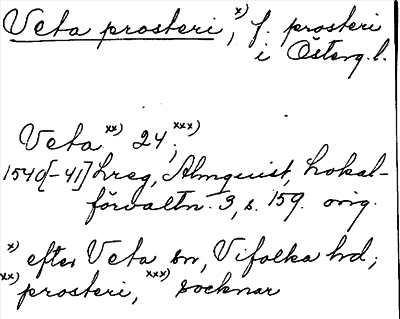 Veta prosteri, x) f. prosteri
i Österg. l.
Veta xx) 24; xxx)
1540[-41] Lreg, Almquist, Lokal-
förvaltn. 3, s. 159. orig.
x) efter Veta sn, Vifolka hd;
xx) prosteri, xxx) socknar